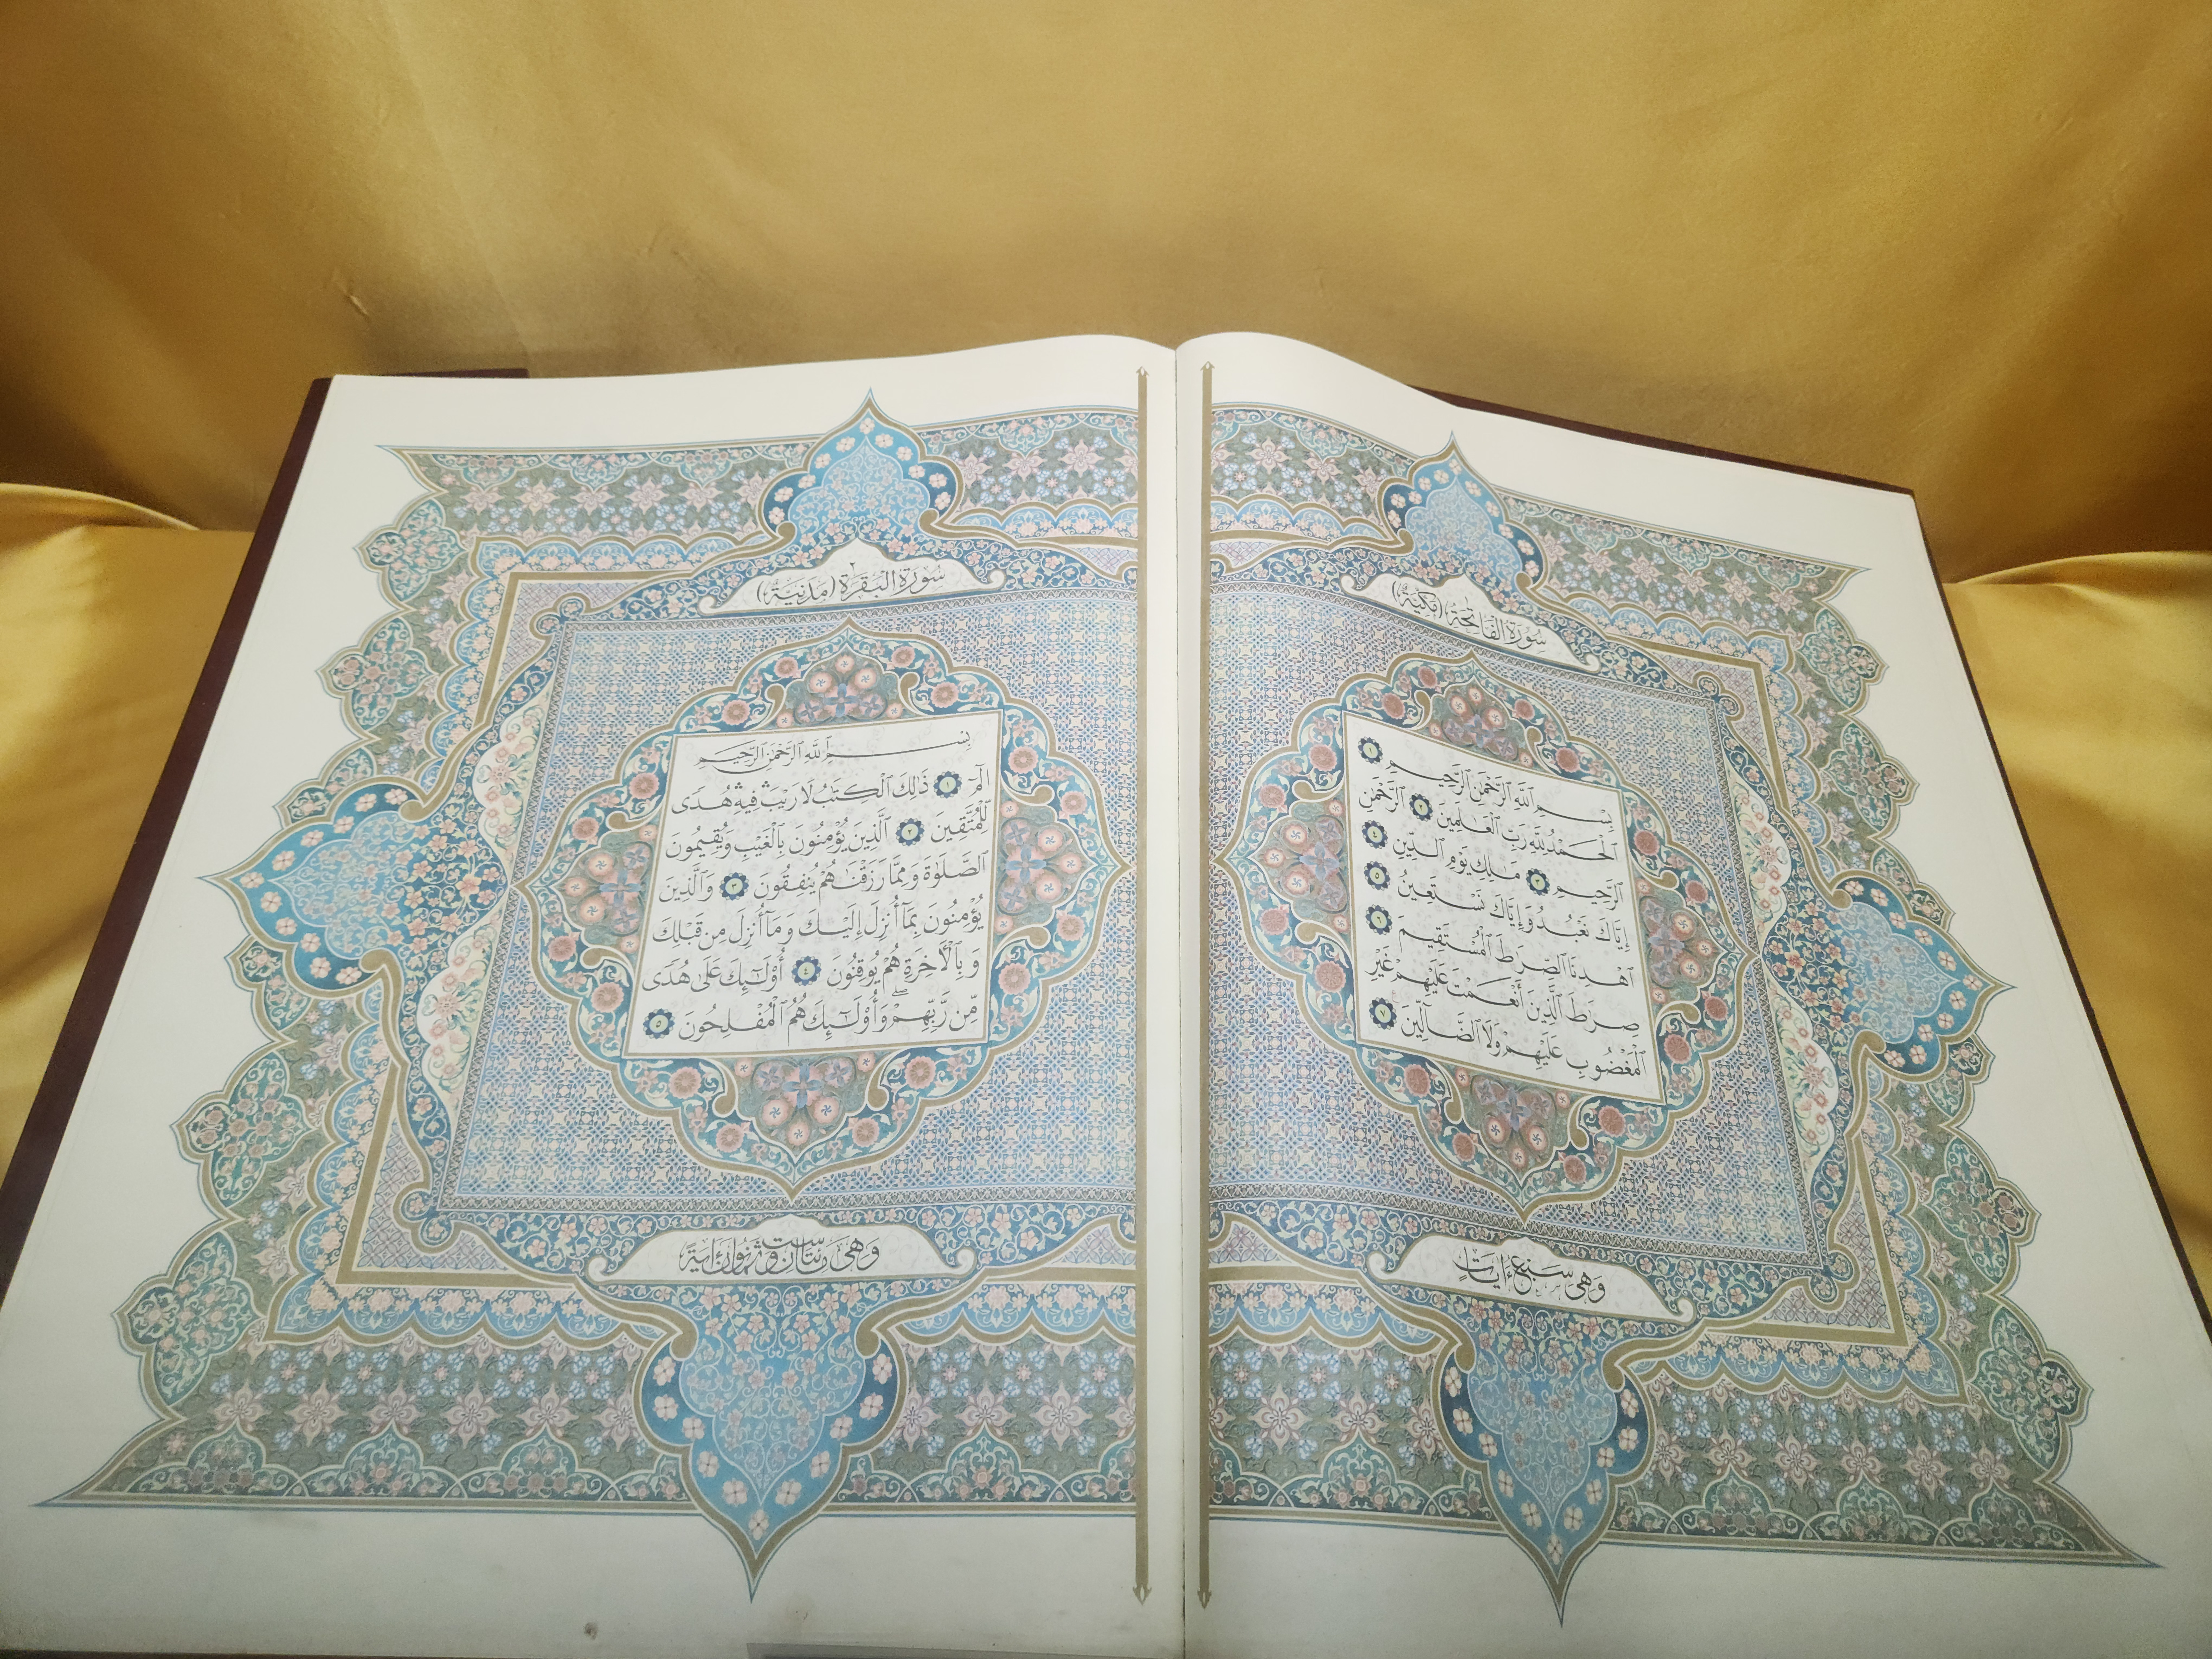 سُورَةُ الْفَاتِحَةِ (مَكِّيَّةٌ)
بِسْمِ ٱللَّهِ ٱلرَّحْمَٰنِ ٱلرَّحِيمِ ١
ٱلْحَمْدُ لِلَّهِ رَبِّ ٱلْعَٰلَمِينَ ٢ ٱلرَّحْمَٰنِ
ٱلرَّحِيمِ ٣ مَٰلِكِ يَوْمِ ٱلدِّينِ ٤
إِيَّاكَ نَعْبُدُ وَإِيَّاكَ نَسْتَعِينُ ٥
ٱهْدِنَا ٱلصِّرَٰطَ ٱلْمُسْتَقِيمَ ٦
صِرَٰطَ ٱلَّذِينَ أَنْعَمْتَ عَلَيْهِمْ غَيْرِ
ٱلْمَغْضُوبِ عَلَيْهِمْ وَلَا ٱلضَّآلِّينَ ٧
وَهِىَ سَبْعُ ءَايَاتٍ
سُورَةُ الْبَقَرَةِ ٢ (مَدَنِيَّةٌ)
بِسْمِ ٱللَّهِ ٱلرَّحْمَٰنِ ٱلرَّحِيمِ
الٓمٓ ١ ذَٰلِكَ ٱلْكِتَٰبُ لَا رَيْبَ ۛ فِيهِ ۛ هُدًى
لِّلْمُتَّقِينَ ٢ ٱلَّذِينَ يُؤْمِنُونَ بِٱلْغَيْبِ وَيُقِيمُونَ
ٱلصَّلَوٰةَ وَمِمَّا رَزَقْنَٰهُمْ يُنفِقُونَ ٣ وَٱلَّذِينَ
يُؤْمِنُونَ بِمَآ أُنزِلَ إِلَيْكَ وَمَآ أُنزِلَ مِن قَبْلِكَ
وَبِٱلْأَخِرَةِ هُمْ يُوقِنُونَ ٤ أُو۟لَٰٓئِكَ عَلَىٰ هُدًى
مِّن رَّبِّهِمْ ۖ وَأُو۟لَٰٓئِكَ هُمُ ٱلْمُفْلِحُونَ ٥
وَهِىَ مِئَتَانِ وَسِتٌّ وَثَمَانُونَ ءَايَةً